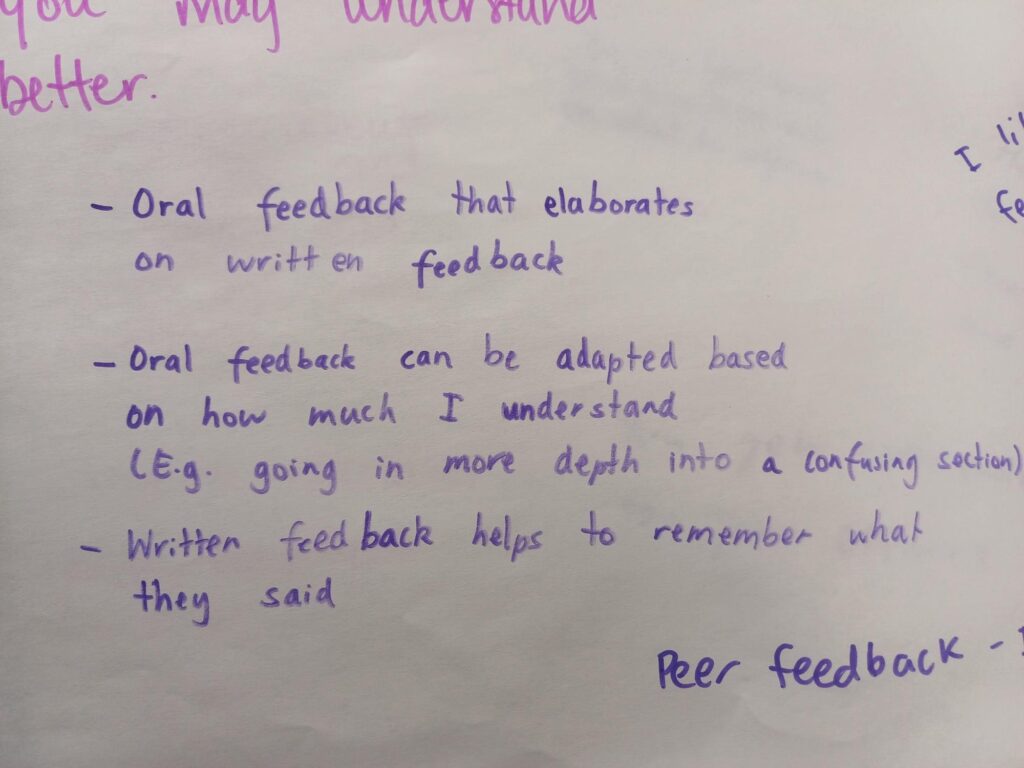 you may understand
better.
I
- Oral feedback that elaborates
on written feedback
- Oral feedback can be adapted based
on how much I understand
(E.g. going in more depth into a confusing section)
- Written feedback helps to remember what
they said
Peer feedback -